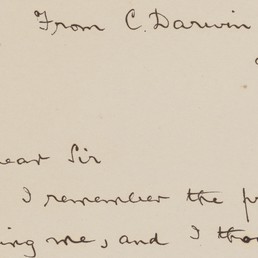 From C. Darwin
ear Sir
I remember the pr
ing me, and I tho